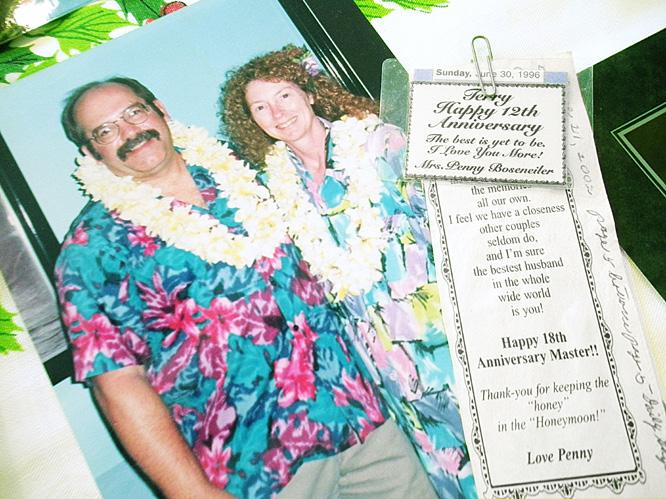 Sunday, June 30, 1996
Terry
Happy 12th
Anniversary
The best is yet to be.
I Love You More!
Mrs. Penny Boseneiler
the memories
all our own.
I feel we have a closeness
other couples
seldom do,
and I'm sure
the bestest husband
in the whole
wide world
is you!
Happy 18th
Anniversary Master!!
Thank-you for keeping the
"honey"
in the "Honeymoon!"
Love Penny